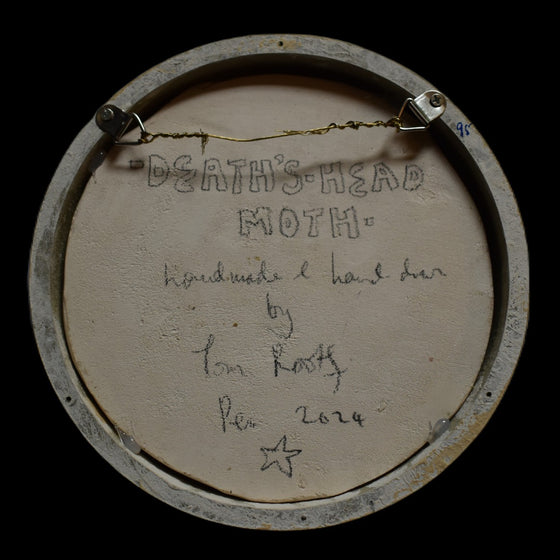 95
-DEATH'S-HEAD
MOTH-
handmade & hand drawn
by
Tom
2024